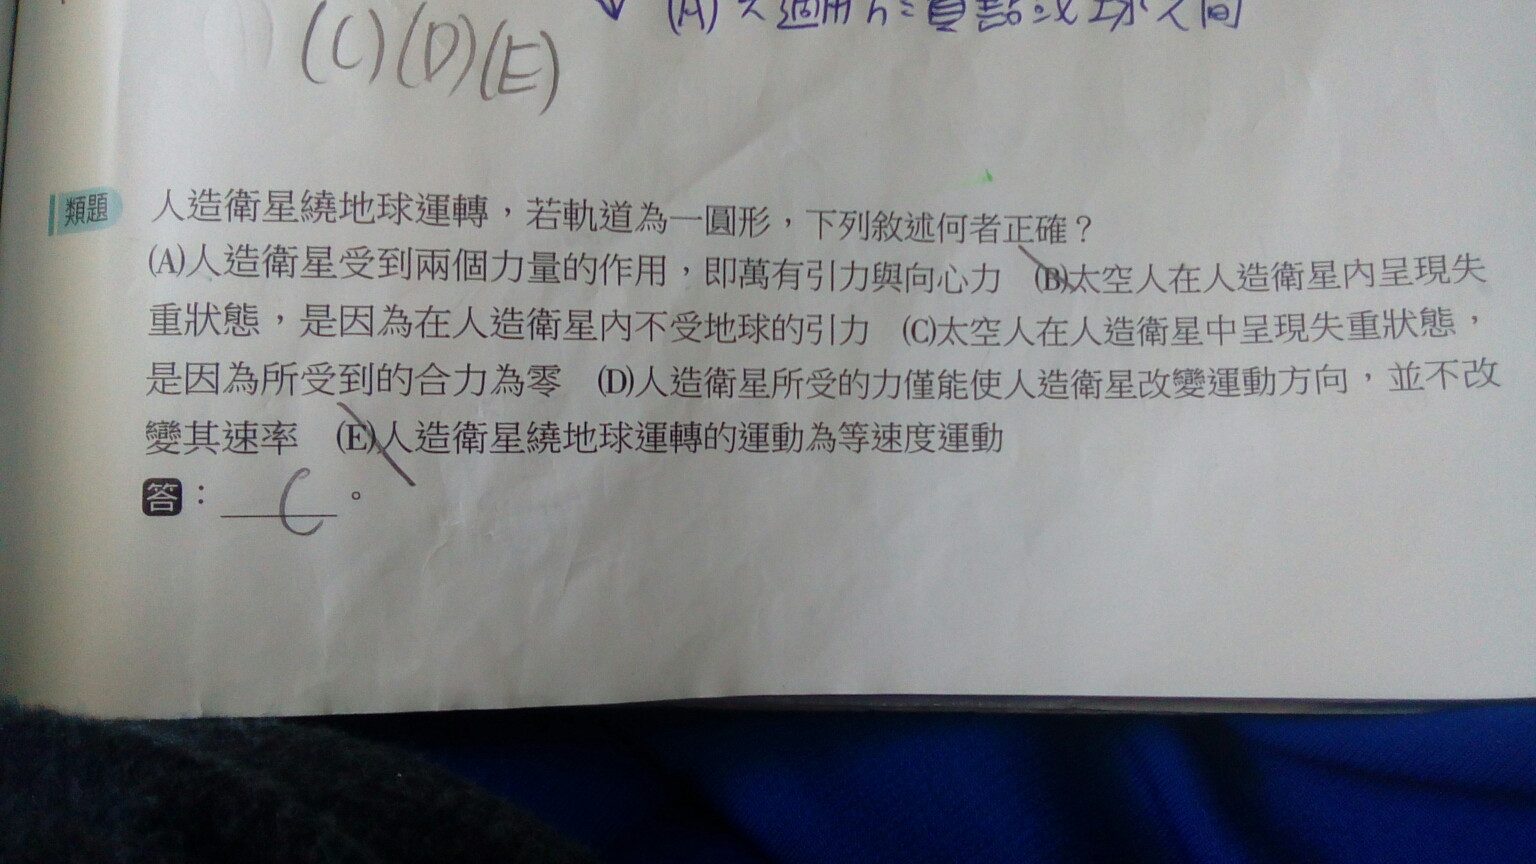 (C)(D)(E)
(A)
類題
人造衛星繞地球運轉，若軌道為一圓形，下列敘述何者正確？
(A)人造衛星受到兩個力量的作用，即萬有引力與向心力 (B)太空人在人造衛星內呈現失
重狀態，是因為在人造衛星內不受地球的引力 (C)太空人在人造衛星中呈現失重狀態，
是因為所受到的合力為零 (D)人造衛星所受的力僅能使人造衛星改變運動方向，並不改
變其速率 (E)人造衛星繞地球運轉的運動為等速度運動
答：C。